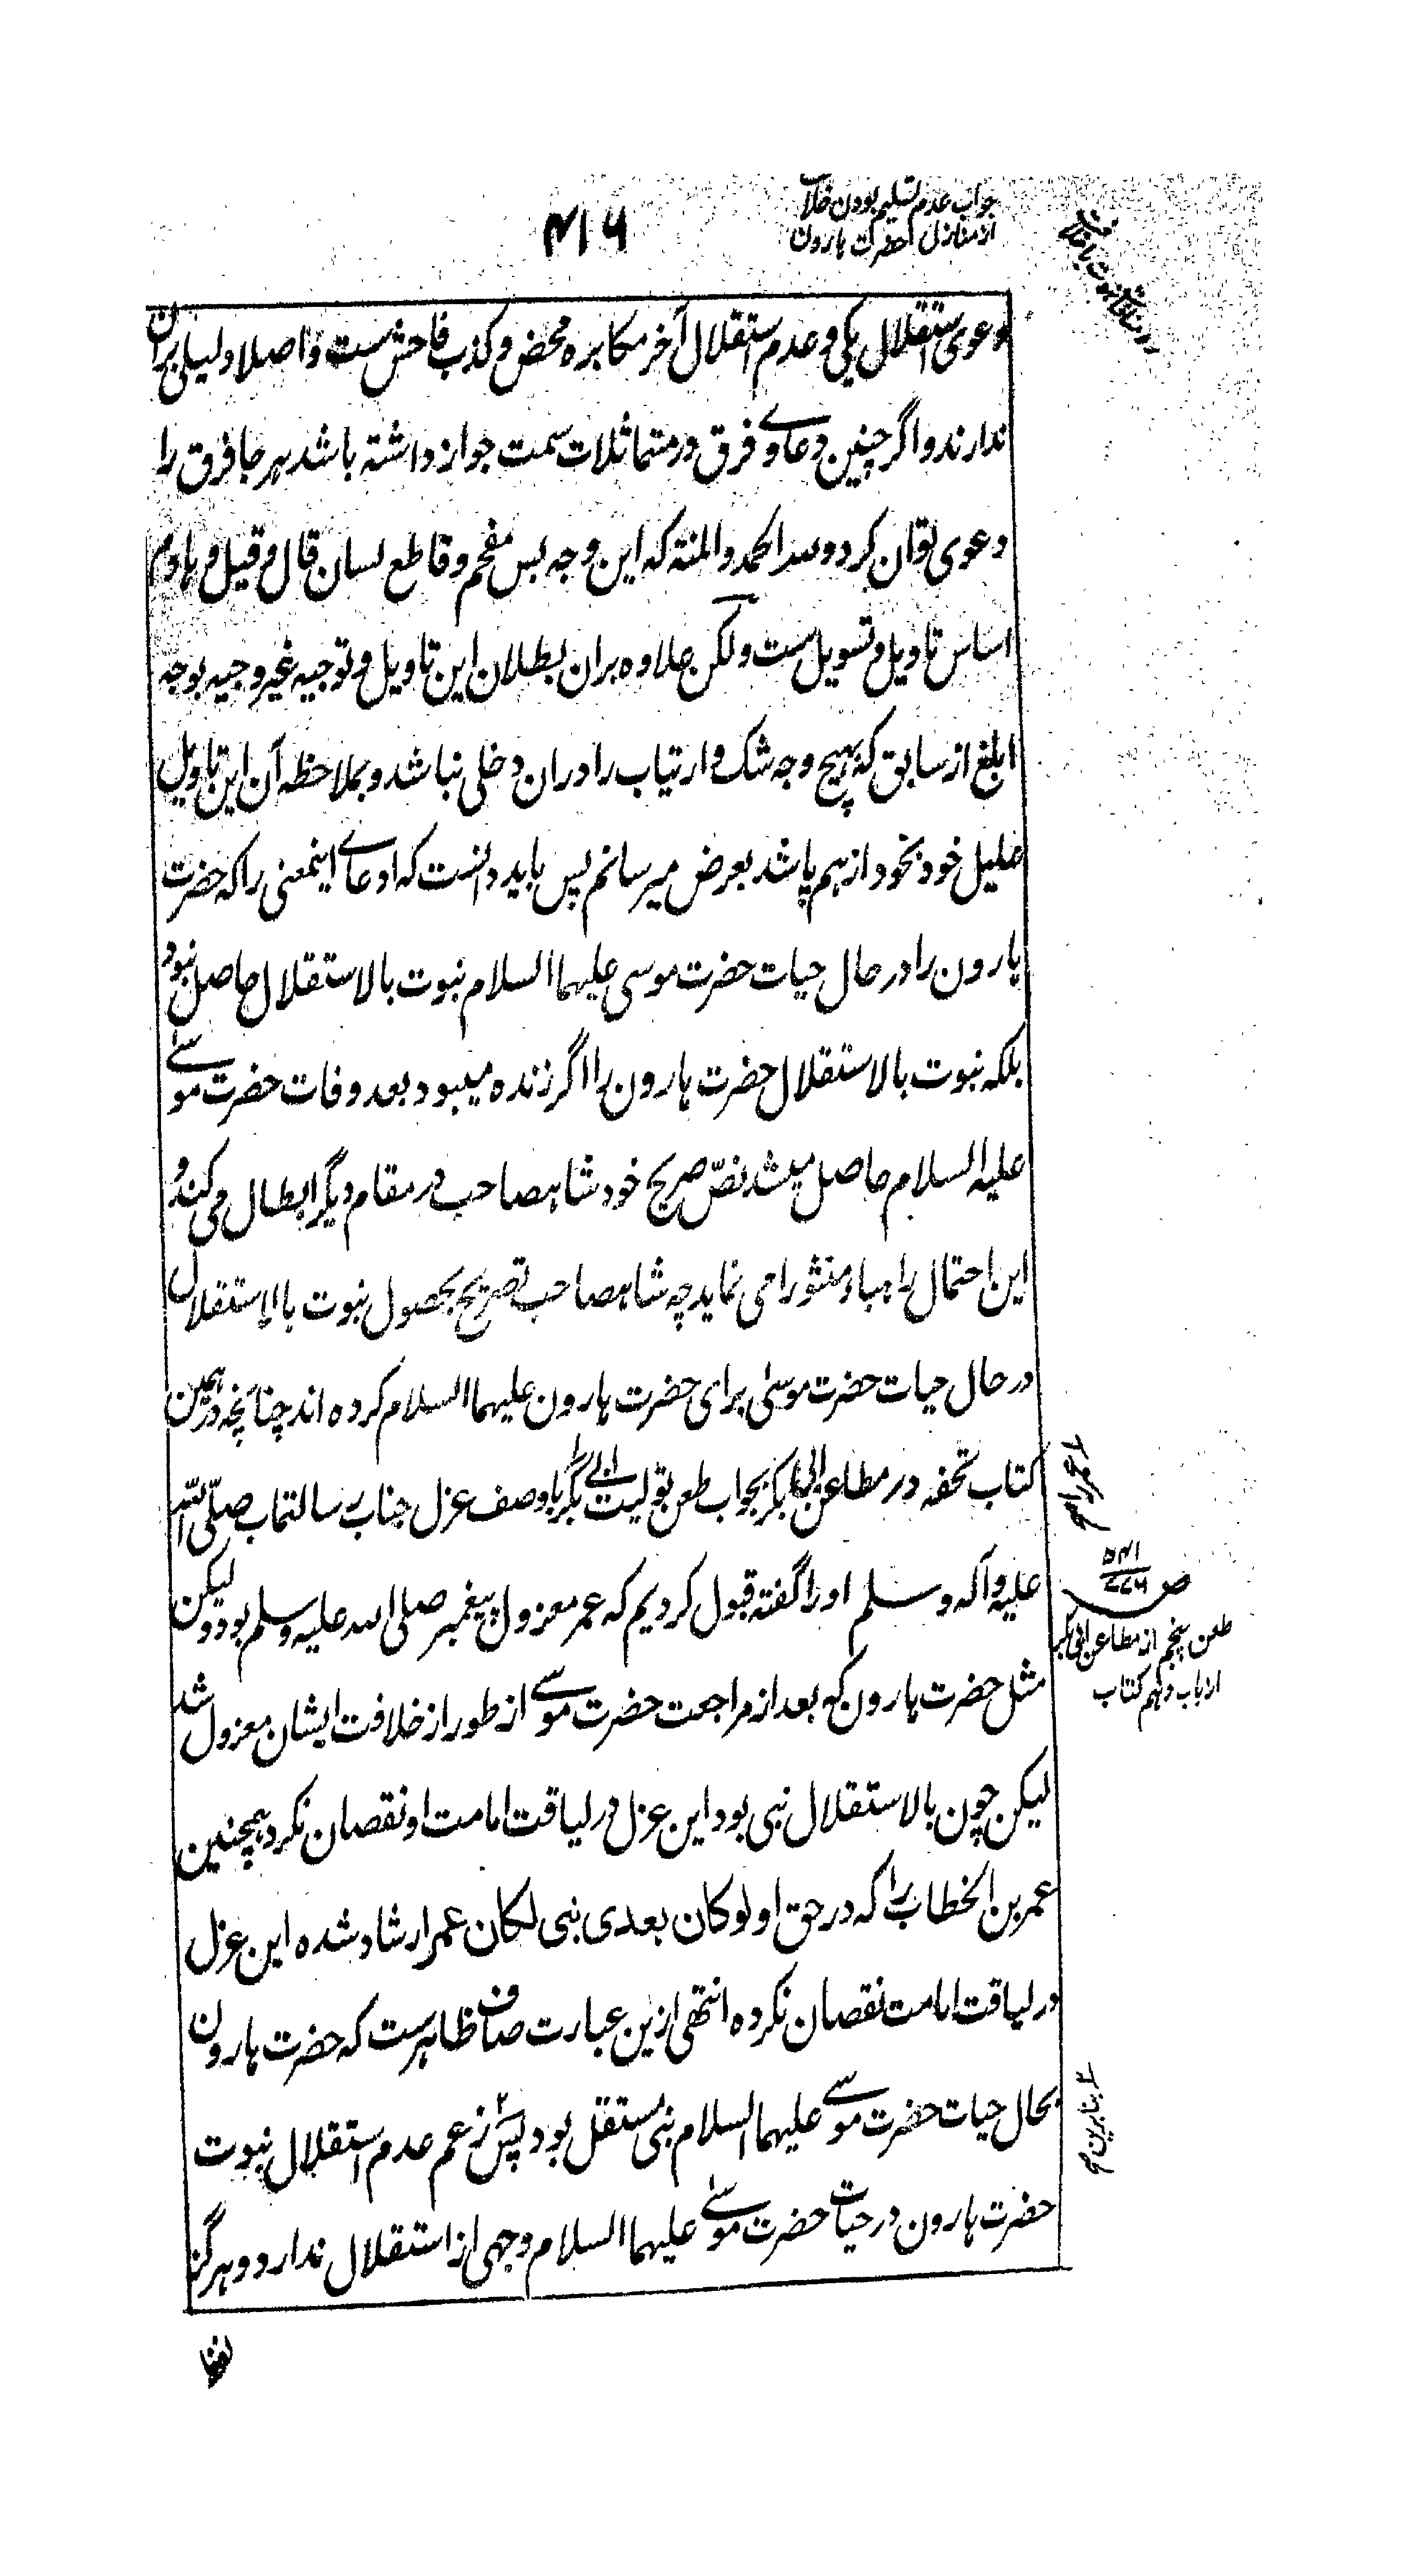 جواب عدم تسلیم بودن خلافت
از منازل حضرت هارون
۴۱۶
دعوی استقلال یکی و عدم استقلال آخر مکابره محض و کذب فاحش ست و اصلا دلیلی بران
ندارند و اگر چنین دعاوے فرق در متماثلات سمت جواز داشته باشد هر جا فرق را
دعوی توان کرد و لله الحمد والمنة که این وجه بس مفحم و قاطع لسان قال و قیل و هادم
اساس تاویل و تسویل ست و لکن علاوه بران بطلان این تاویل و توجیه غیر وجیه بوجه
ابلغ از سابق که بهیچ وجه شک و ارتیاب را دران دخلی نباشد و بملاحظه آن این تاویل
علیل خود بخود از هم پاشد بعرض میرسانم پس باید دانست که ادعاے اینمعنی را که حضرت
هارون را در حال حیات حضرت موسی علیهما السلام نبوت بالاستقلال حاصل نبود
بلکه نبوت بالاستقلال حضرت هارون را اگر زنده میبود بعد وفات حضرت موسے
علیه السلام حاصل میشد نصّ صریح خود شاهصاحب در مقام دیگر ابطال می کند و
این احتمال را هباء منثورا می نماید چه شاهصاحب تصریح بحصول نبوت بالاستقلال
در حال حیات حضرت موسیٰ برای حضرت هارون علیهما السلام کرده اند چنانچه در همین
کتاب تحفه در مطاعن ابی بکر بجواب طعن تولیت ابی بکر با وصف عزل جناب رسالتماب صلّی الله
علیه و آله و سلم او را گفته قبول کردیم که عمر معزول پیغمبر صلی الله علیه و سلم بود و لیکن
مثل حضرت هارون که بعد از مراجعت حضرت موسے از طور از خلافت ایشان معزول شد
لیکن چون بالاستقلال نبی بود این عزل در لیاقت امامت او نقصان نکرد همچنین
عمر بن الخطاب را که در حق او لو کان بعدی نبی لکان عمر ارشاد شده این عزل
در لیاقت امامت نقصان نکرده انتهی ازین عبارت صاف ظاهرست که حضرت هارون
بحال حیات حضرت موسے علیهما السلام نبی مستقل بود پس زعم عدم استقلال نبوت
حضرت هارون در حیات حضرت موسےٰ علیهما السلام وجهی از استقلال ندارد و هرگز
ص
طعن پنجم از مطاعن ابی بکر
از باب دهم کتاب
بنابرین